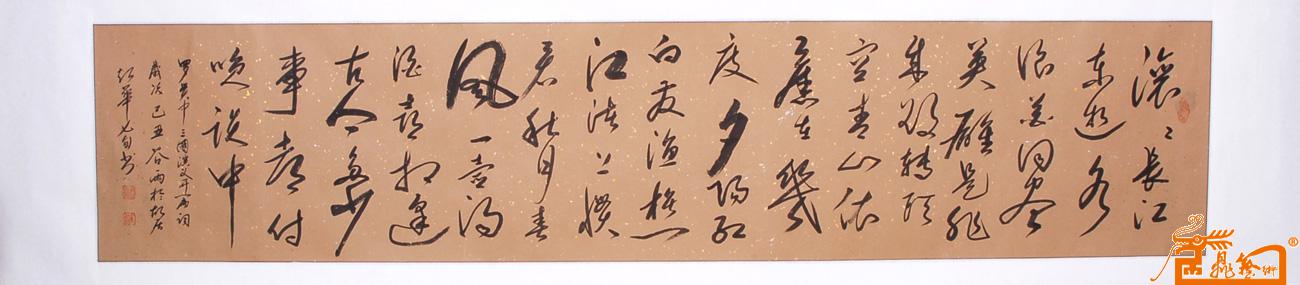 滚〻長江
东逝水
浪花淘尽
英雄是非
成败转头
空青山依
舊在幾
度夕阳红
白发渔樵
江渚上惯
看秋月春
風一壶浊
酒喜相逢
古今多少
事都付
笑谈中
罗贯中三國演义开篇词
歲次己丑谷雨於
藝術